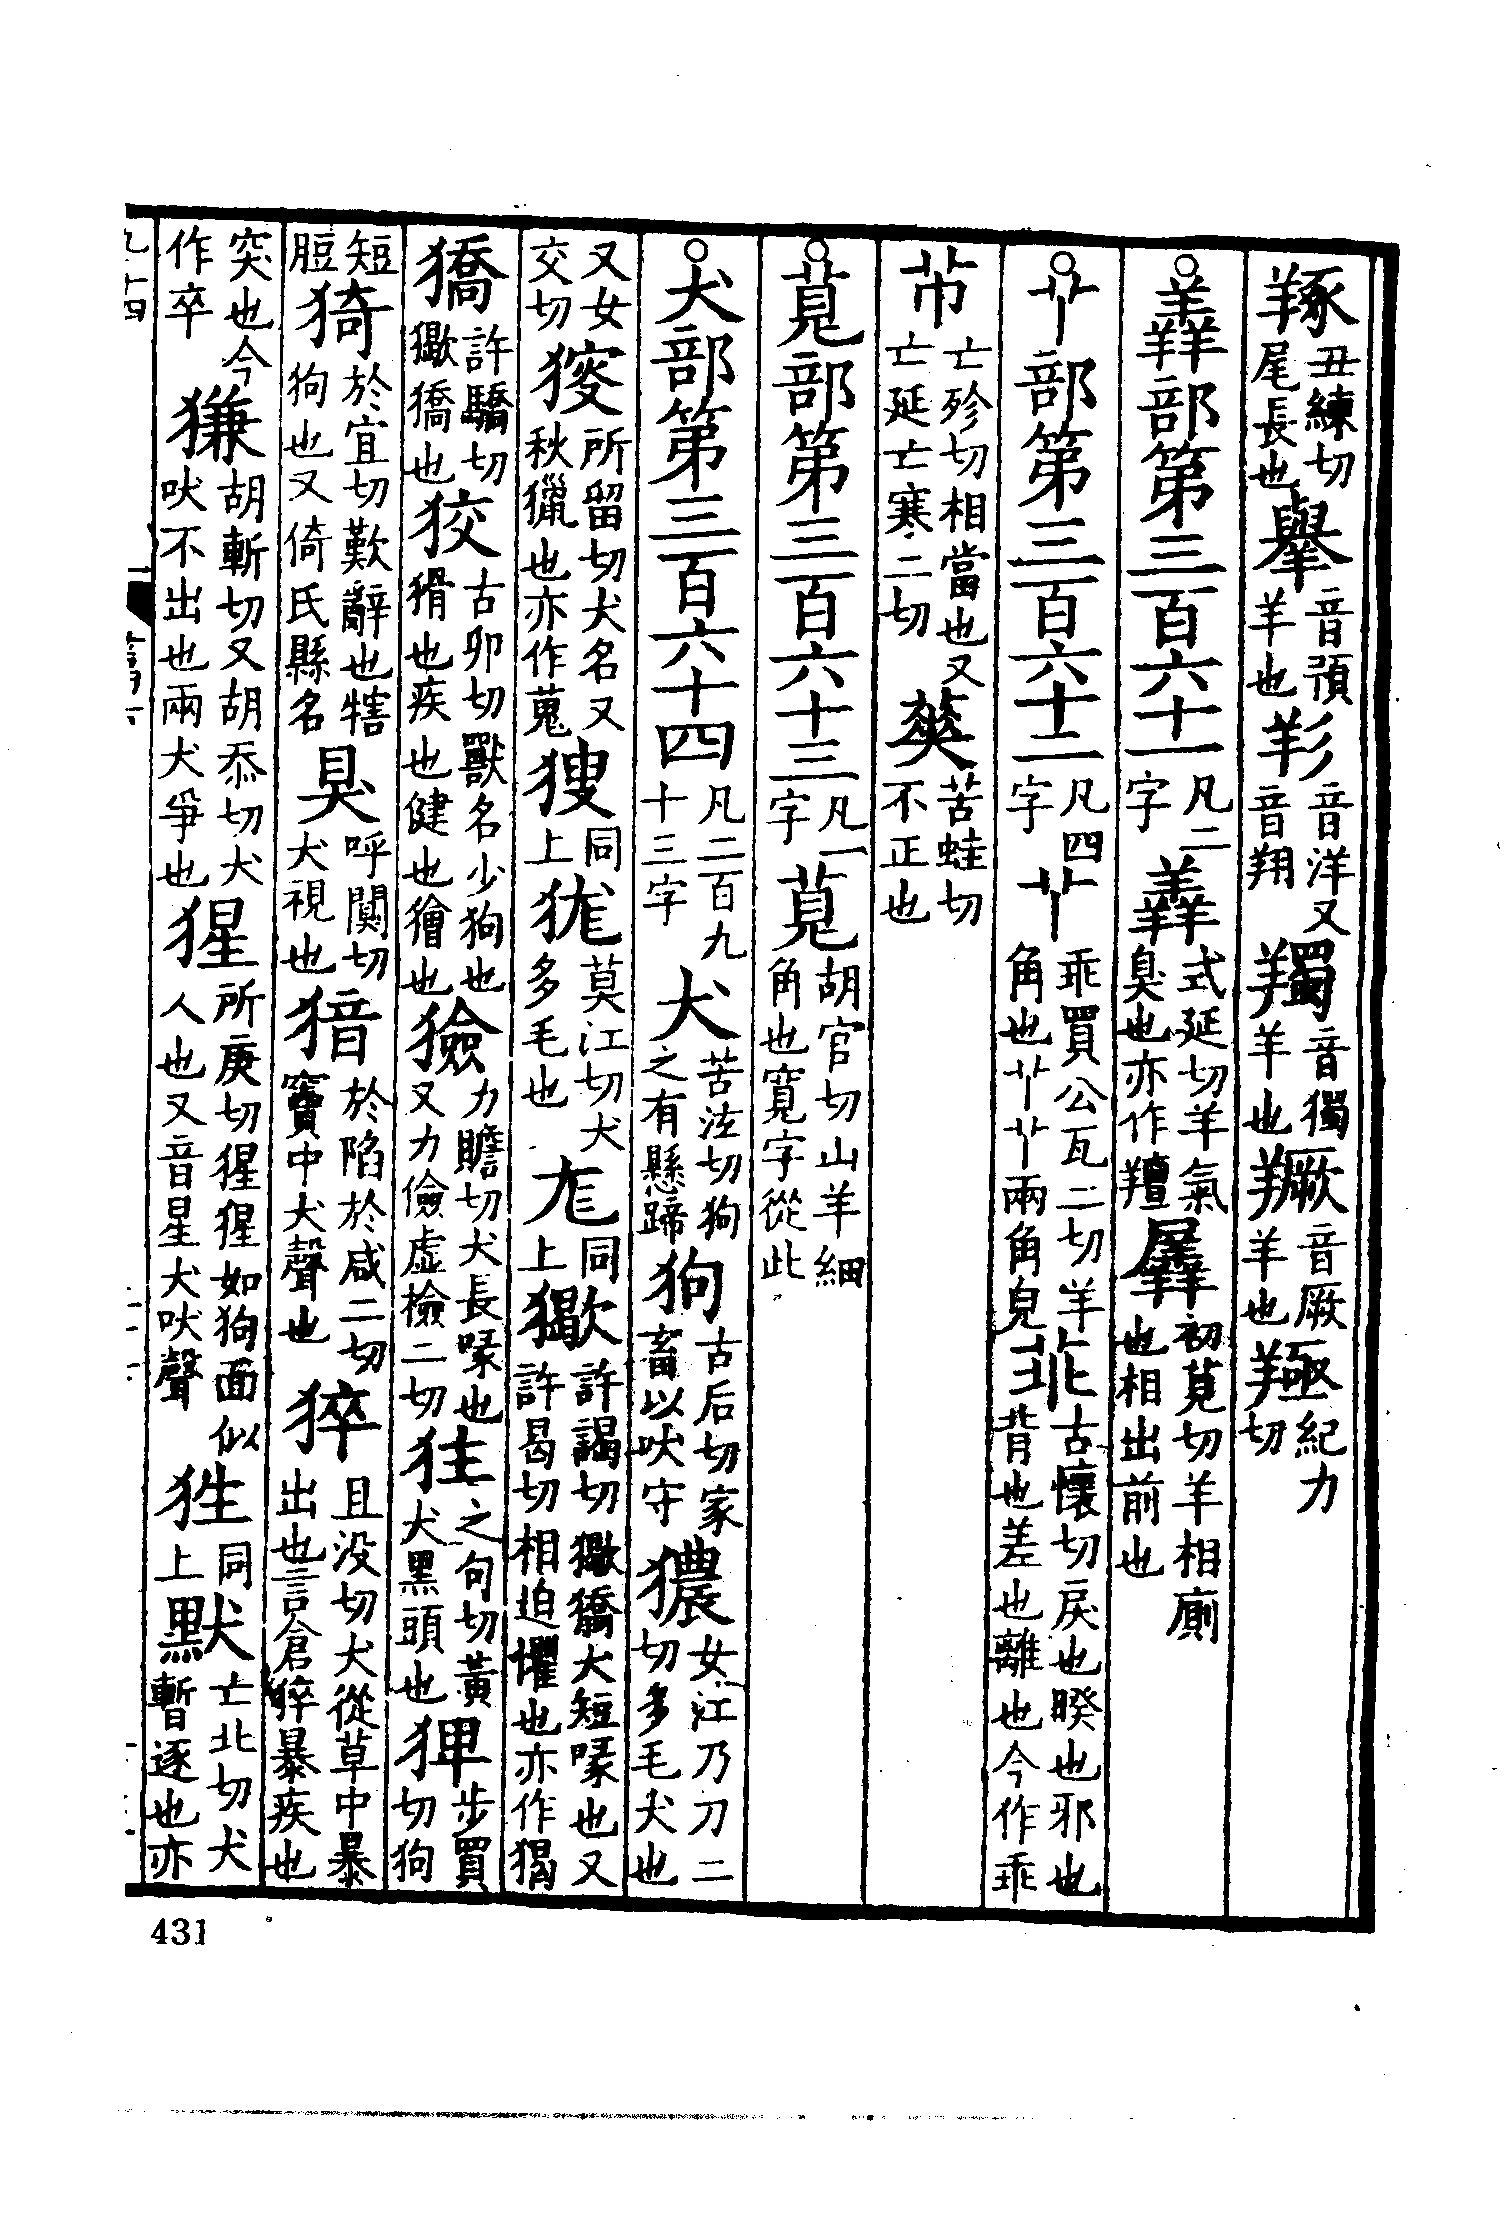 䍺丑練切尾長也䍵音預羊也羏音洋又音翔𦏪音獨羊也𦏐音厥羊也𦍹紀力切
羴部第三百六十一凡二字羴式延切羊氣臭也亦作羶羼初莧切羊相廁也相出前也
𦫳部第三百六十二凡四字𦫳乖買公瓦二切羊角也𦫳𦫳兩角皃𦮃古懷切戾也睽也邪也背也差也離也今作乖
𦬠亡殄切相當也又亡延亡寒二切𦱔苦蛙切不正也
萈部第三百六十三凡一字萈胡官切山羊細角也寬字從此
犬部第三百六十四凡二百九十三字犬苦泫切狗之有懸蹄狗古后切家畜以吠守獿女江乃刀二切多毛犬也
又女交切㺑所留切犬名又秋獵也亦作蒐獀同上狵莫江切犬多毛也尨同上獥許謁切獥獢犬短喙也又許曷切相迫懼也亦作猲
獢許驕切獥獢也狡古卯切獸名少狗也猾也疾也健也獪也獫力瞻切犬長喙也又力儉虛檢二切狂之句切黃犬黑頭也猈步買切狗
短脰猗於宜切歎辭也犗狗也又猗氏縣名狊呼闃切犬視也猎於陷於咸二切竇中犬聲也猝且没切犬從草中暴出也言倉猝暴疾也
突也今作卒㺌胡斬切又胡忝切犬吠不出也兩犬爭也猩所庚切猩猩如狗面似人也又音星犬吠聲狌同上默亡北切犬暫逐也亦
431